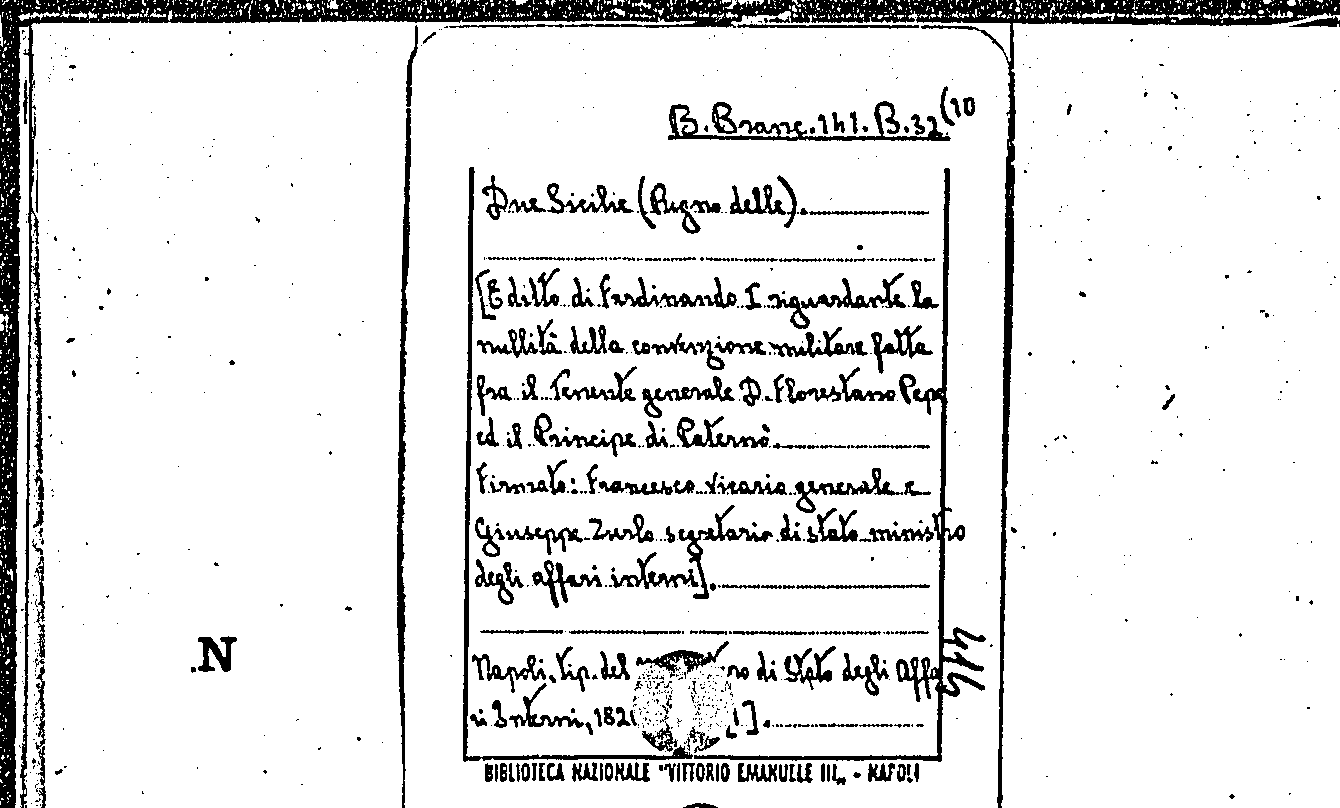 B. Branc. 141. B. 32(10
Due Sicilie (Regno delle).
[Editto di Ferdinando I riguardante la
nullità della convenzione militare fatta
fra il Tenente generale D. Florestano Pepe
ed il Principe di Paternò.
Firmato: Francesco vicario generale e
Giuseppe Zurlo segretario di stato ministro
degli affari interni].
N
Napoli, tip. del di Stato degli Affa
ri Interni,
416
BIBLIOTECA NAZIONALE "VITTORIO EMANUELE III„ - NAPOLI